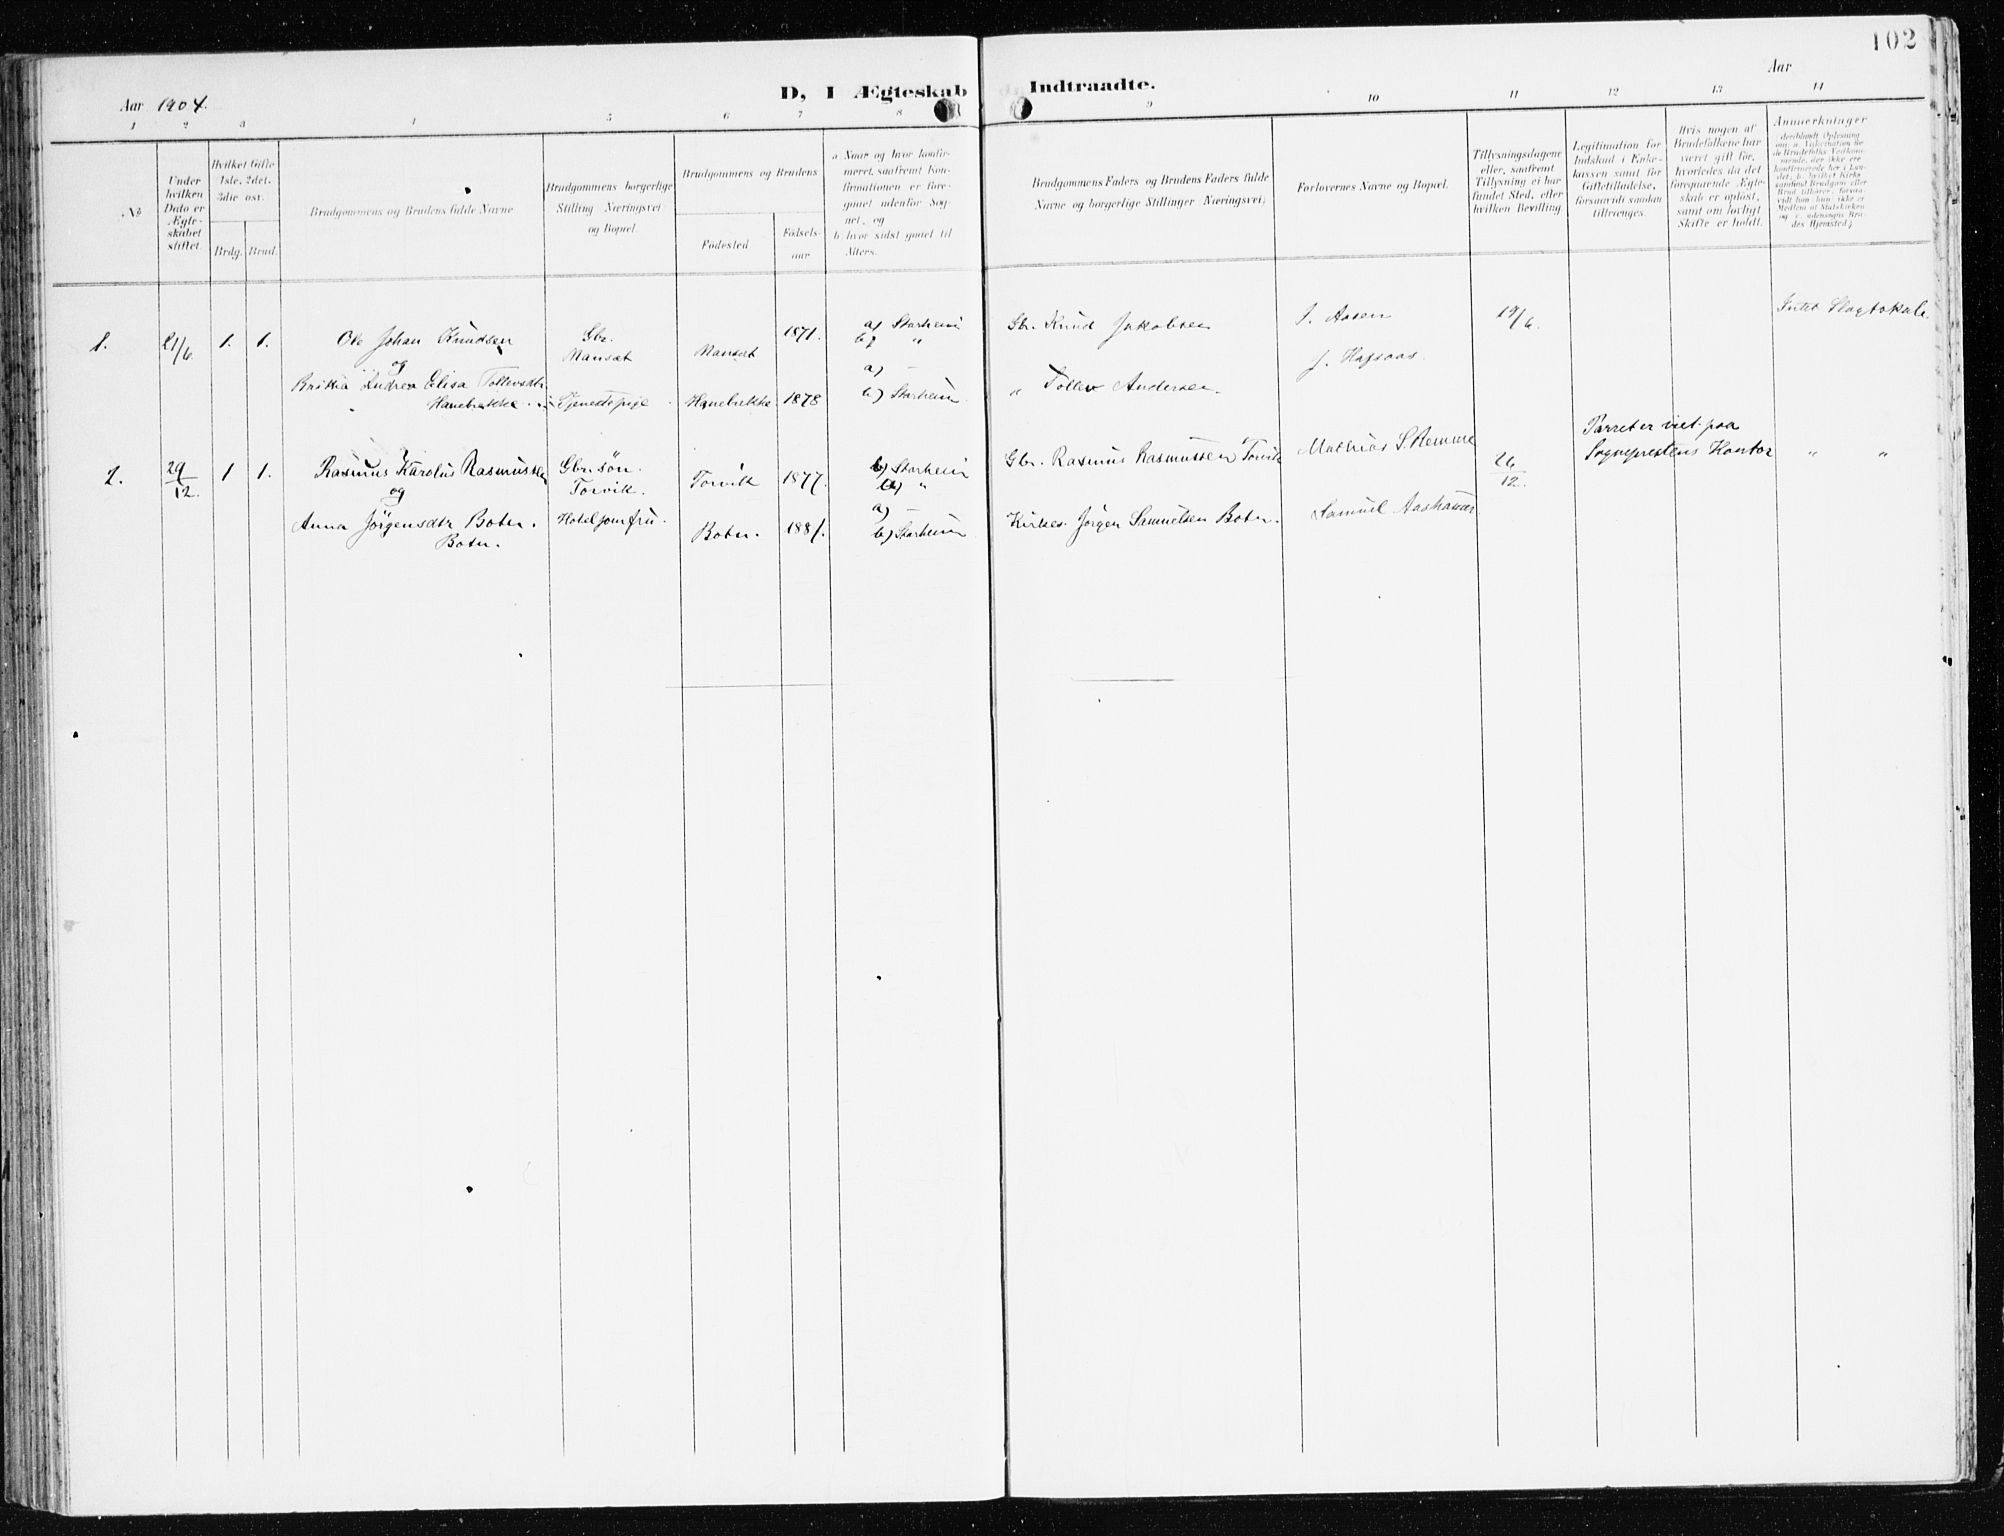 102
Aar 1904.
D, I Ægteskab Indtraadte.
Aar
1 2 3 4 5 6 7 8 9 10 11 12 13 14
No
Under hvilken Dato er Ægteskabet stiftet.
Hvilket Gifte 1ste, 2det, 3die osv.
Brdg. Brud.
Brudgommens og Brudens fulde Navne
Brudgommens borgerlige Stilling Næringsvei og Bopæl.
Brudgommens og Brudens
Födested
Födselsaar
a Naar og hvor konfirmeret, saafremt Konfirmationen er foregaaet udenfor Sognet, og
b. hvor sidst gaaet til Alters.
Brudgommens Faders og Brudens Faders fulde Navne og borgerlige Stillinger Næringsvei;
Forlovernes Navne og Bopæl.
Tillysningsdagene eller, saafremt Tillysning ei har fundet Sted, efter hvilken Bevilling
Legitimation for Indskud i Enkekassen samt for Giftetilladelse, forsaavidt saadan tiltrænges.
Hvis nogen af Brudefolkene har været gift för, hvorledes da det foregaaende Ægteskab er oplöst, samt om lovligt Skifte er holdt.
Anmerkninger
1. 21/6 1. 1. Ole Johan Knudsen Gbr. Mansæt Mansæt 1871. a) Starheim Gbr. Knud Jakobsen J. Aasen 19/6.
b) "
og
a) –
J. Hagsaas.
Andrea Elisa Tollevsdtr. Hanebrekke Tjenestepige Hanebrekke 1878 b) Starheim " Tollev Andersen
2. 29/12. 1 1. Rasmus Karolus Rasmussen Gbr. sön. Torvik. Torvik 1877. Starheim Gbr. Rasmus Rasmussen Torvik Mathias S. 26/12. Parret er viet paa Sogneprestens Kontor " "
og
a) –
Anna Jörgensdtr Boten. Boten. Hoteljomfru. Boten. 1881. b) Starheim Kirkes. Jörgen Samuelsen Boten. Samuel